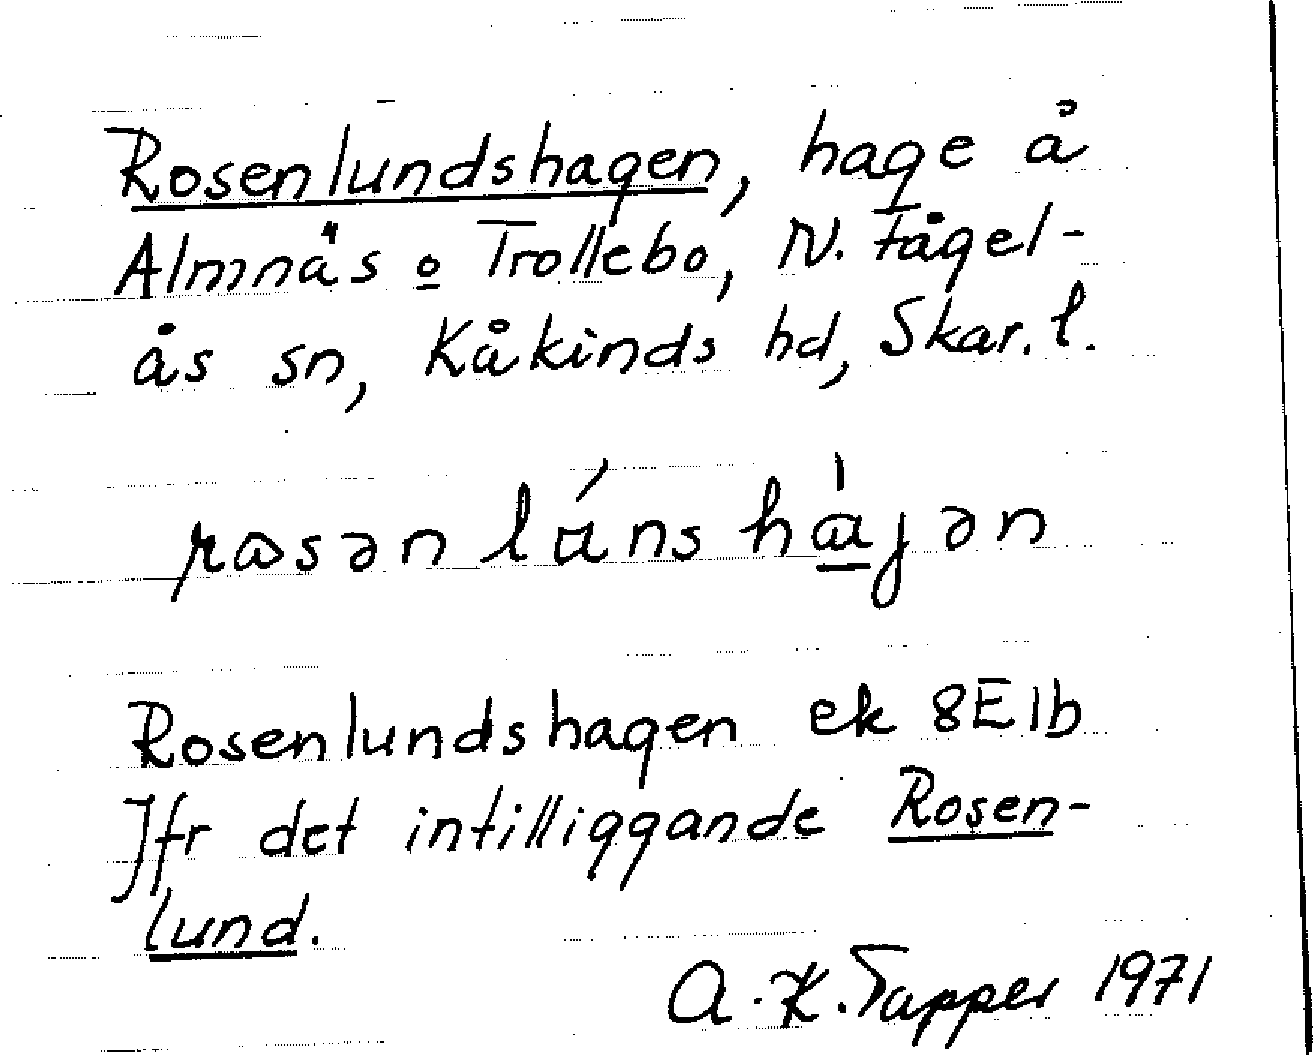 Rosenlundshagen, hage å
Almnäs o Trollebo, N. Fågel-
ås sn, Kåkinds hd, Skar. l.
rasən lúns hàjən
Rosenlundshagen ek 8E1b
Jfr det intilliggande Rosen-
lund.
A.-K. Tapper 1971